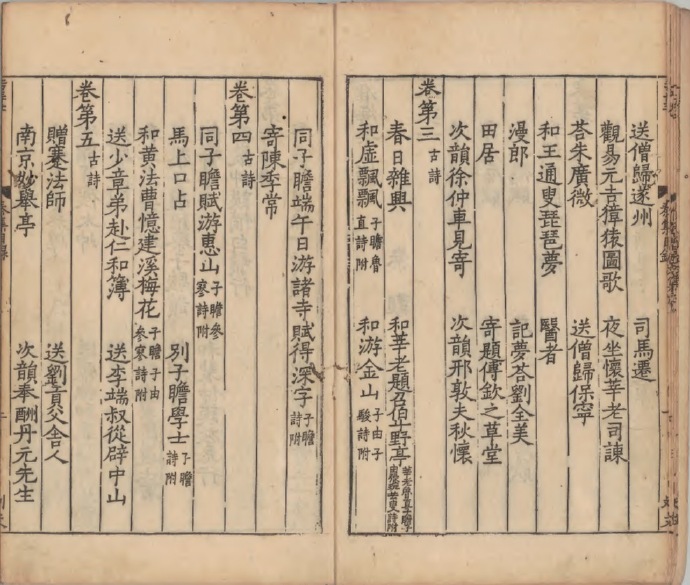 送僧歸遂州　司馬遷
觀易元吉獐猿圖歌　夜坐懷莘老司諫
荅朱廣微　送僧歸保寧
和王通叟琵琶夢　醫者
漫郎　記夢荅劉全美
田居　寄題傅欽之草堂
次韻徐仲車見寄　次韻邢敦夫秋懷
卷第三　古詩
春日雜興　和莘老題召伯斗野亭
和虛飄飄 子瞻魯直詩附　和游金山 子由子駿詩附
同子瞻端午日游諸寺賦得深字 子瞻詩附
寄陳季常
卷第四　古詩
同子瞻賦游惠山 子瞻參寥詩附
馬上口占　別子瞻學士 子瞻詩附
和黃法曹憶建溪梅花 子瞻子由參寥詩附
送少章弟赴仁和簿　送李端叔從辟中山
卷第五　古詩
贈蹇法師　送劉貢父舍人
南京妙峯亭　次韻奉酬丹元先生